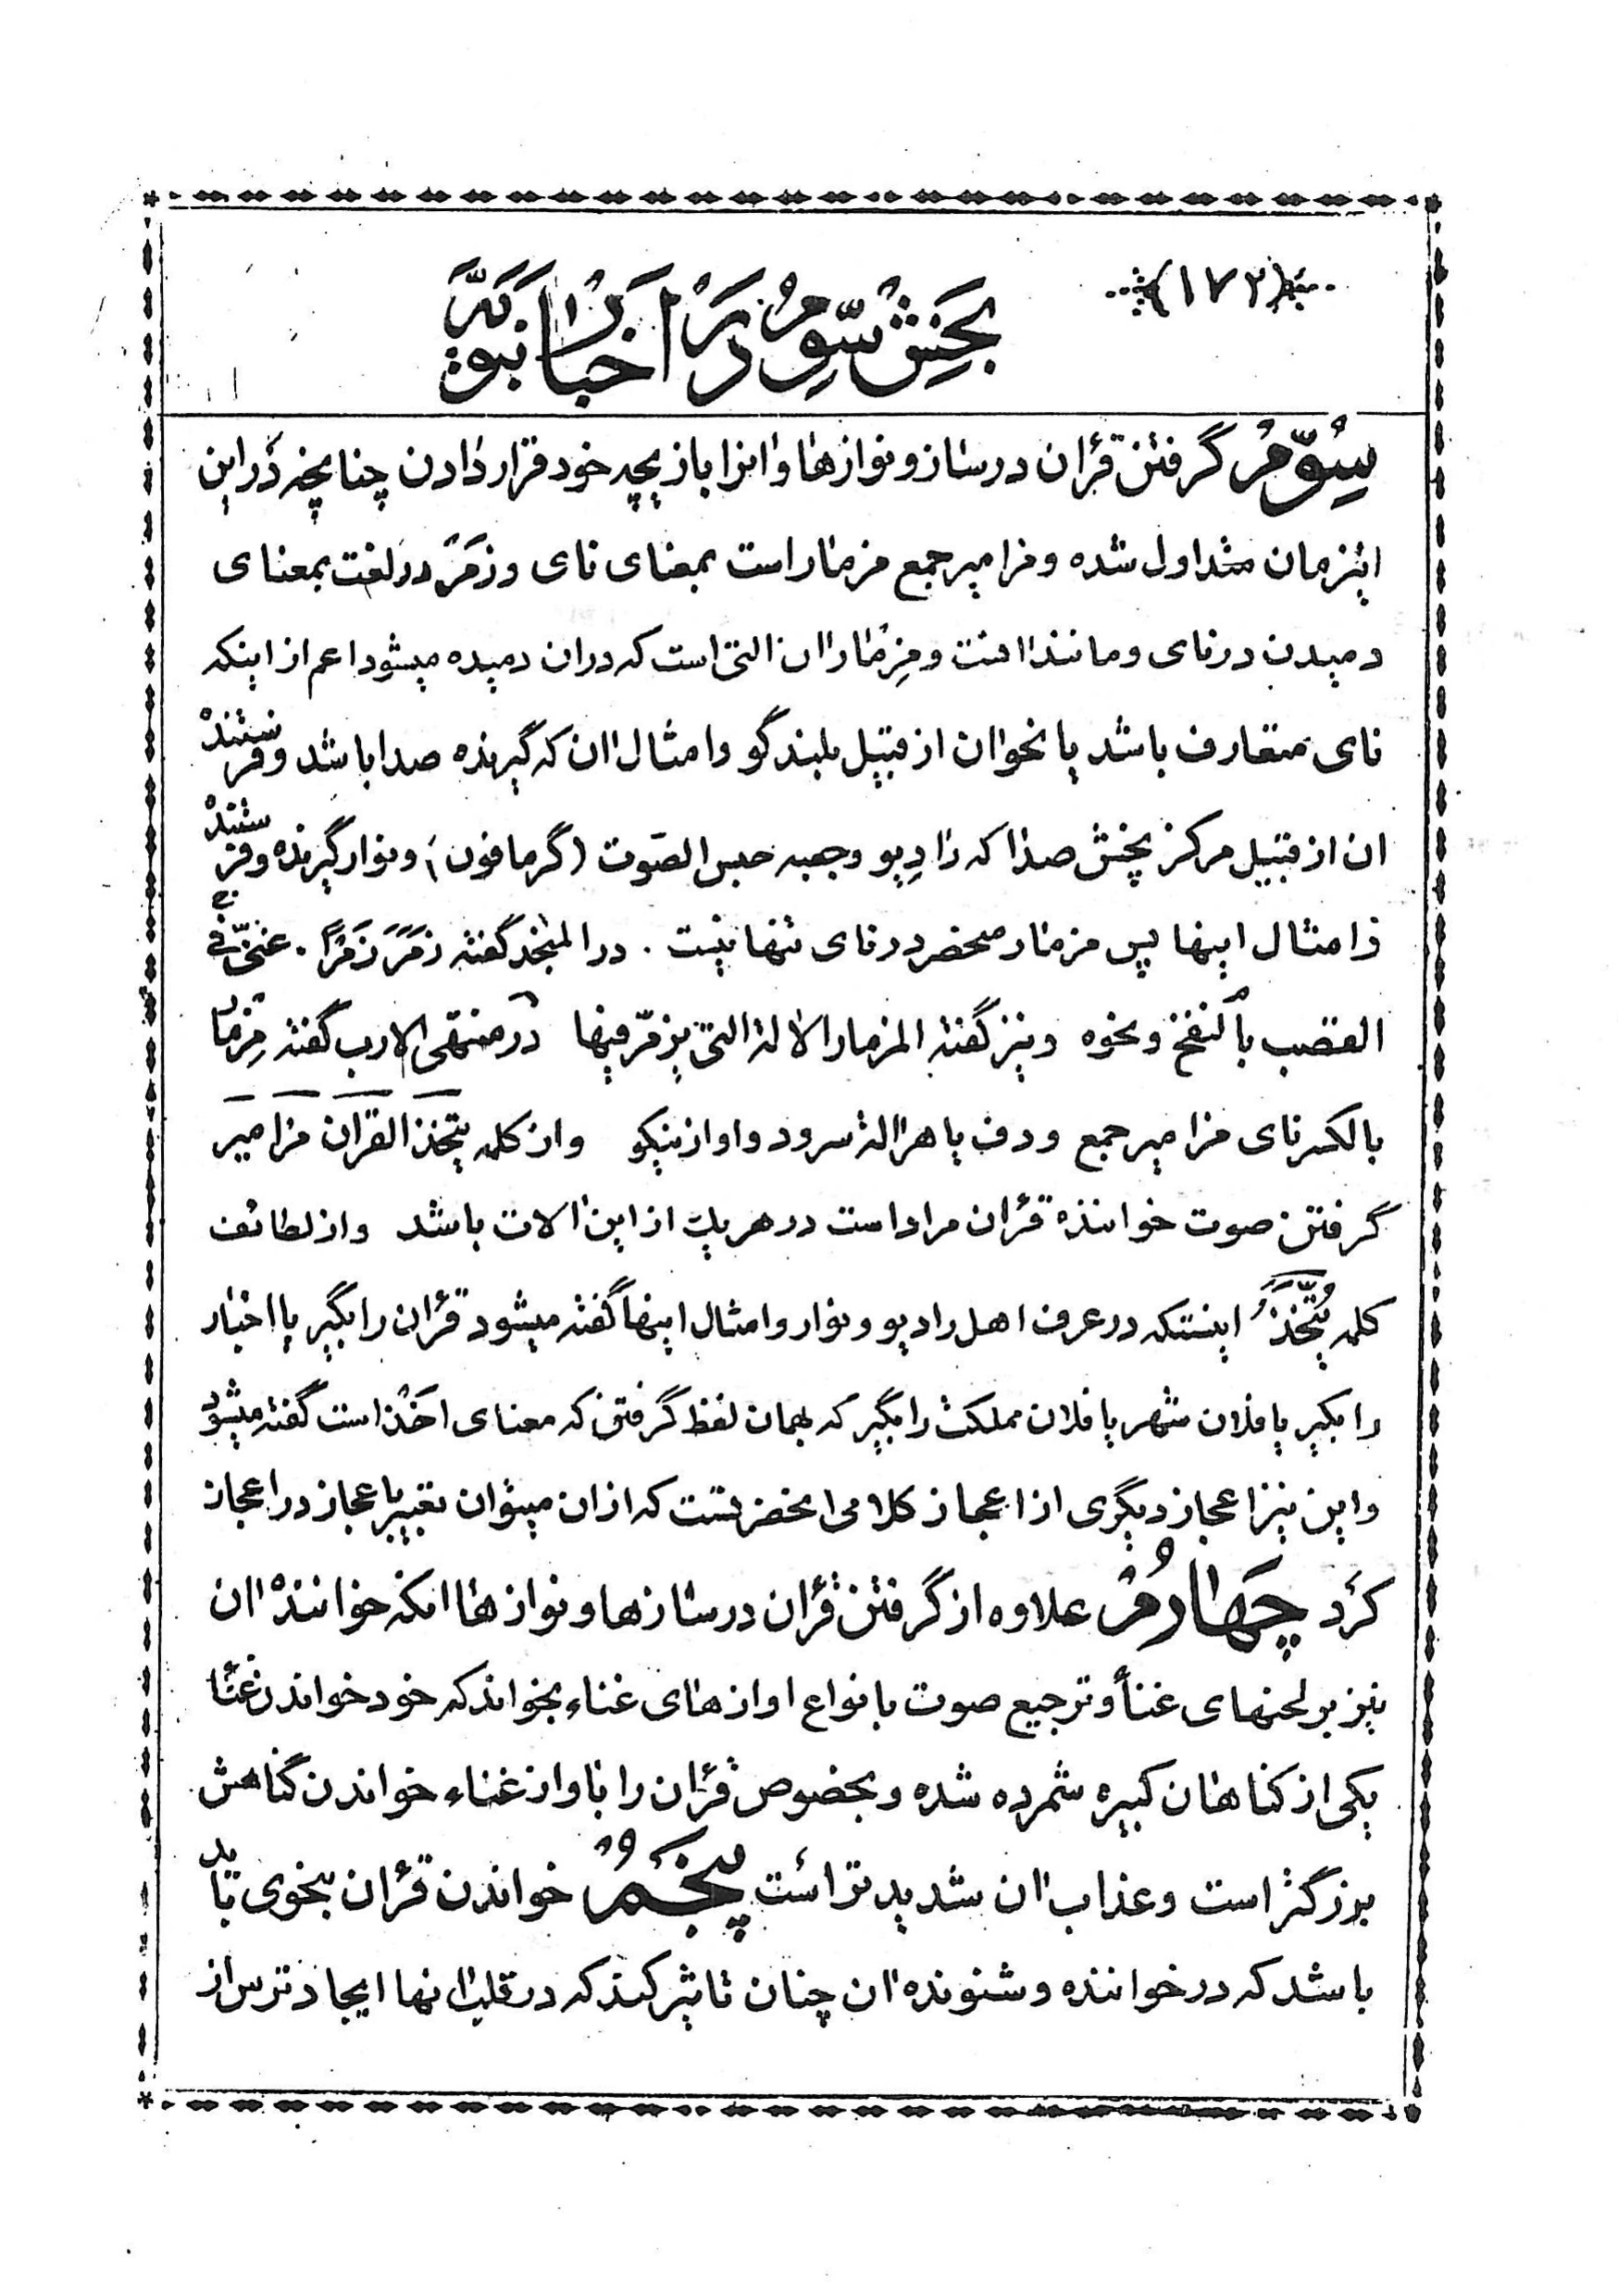 (۱۷۲)
بخش سوم در اخبار نبویه
سوم گرفتن قرآن در ساز و نوازها و آنرا بازیچه خود قرار دادن چنانچه در این
این زمان متداول شده و مزامیر جمع مزمار است بمعنای نای و زَمَرَ در لغت بمعنای
دمیدن در نای و مانند انست و مِزمار ان التی است که در ان دمیده میشود اعم از اینکه
نای متعارف باشد یا نحو ان از قبیل بلندگو و امثال ان که گیرنده صدا باشد و فرستنده
ان از قبیل مرکز پخش صدا که رادیو و جعبه حبس الصوت (گرمافون) و نوار گیرنده و فرستنده
و امثال اینها پس مزمار منحصر در نای تنها نیست . در المنجد گفته زَمَرَ زَمراً . غنّی فی
القصب بالنفخ و نحوه و نیز گفته المزمار الالة التی یزمّر فیها در منتهی الارب گفته مِزمار
بالکسر نای مزامیر جمع و دف یا هر اله سرود و اواز نیکو و از کلمه یتّخذ القران مزامیر
گرفتن صوت خواننده قرآن مراد است در هر یک از این الات باشد و از لطائف
کلمه یُتَّخَذُ اینستکه در عرف اهل رادیو و نوار و امثال اینها گفته میشود قرآن را بگیر یا اخبار
را بگیر یا فلان شهر یا فلان مملکت را بگیر که بهمان لفظ گرفتن که معنای اخذ است گفته میشود
و این نیز اعجاز دیگری از اعجاز کلامی انحضرتست که از ان میتوان تعبیر باعجاز در اعجاز
کرد چهارم علاوه از گرفتن قرآن در سازها و نوازها انکه خواننده ان
نیز بر لحنهای غناء و ترجیع صوت بانواع اوازهای غناء بخواند که خود خواندن غناء
یکی از گناهان کبیره شمرده شده و بخصوص قرآن را باواز غناء خواندن گناهش
بزرگتر است و عذاب ان شدیدتر است پنجم خواندن قرآن بنحوی باید
باشد که در خواننده و شنونده ان چنان تاثیر کند که در قلب انها ایجاد ترس از